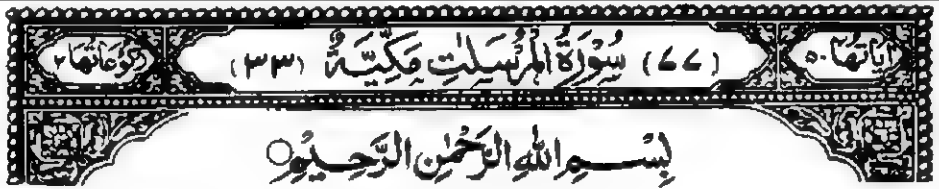 اٰيَاتُهَا ٥٠ (٧٧) سُوْرَةُ الْمُرْسَلٰتِ مَكِّيَّةٌ (٣٣) رُكُوْعَاتُهَا ٢
بِسْمِ اللهِ الرَّحْمٰنِ الرَّحِيْمِ